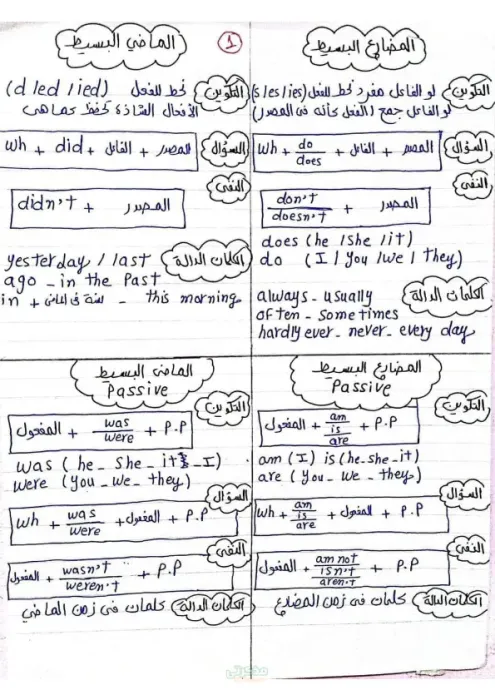 ①
المضارع البسيط
التكوين
لو الفاعل مفرد نحط للفعل (s / es / ies)
لو الفاعل جمع (الفعل كأنه فى المصدر)
السؤال
wh + do / does + الفاعل + المصدر
النفى
don't / doesn't + المصدر
does (he / she / it)
do (I / you / we / they)
الكلمات الدالة
always - usually
often - sometimes
hardly ever - never - every day
الماضي البسيط
التكوين
نحط للفعل (d / ed / ied)
الأفعال الشاذة تحفظ كما هى
السؤال
wh + did + الفاعل + المصدر
النفى
didn't + المصدر
الكلمات الدالة
yesterday / last
ago - in the Past
in + سنة فى الماضى - this morning
المضارع البسيط
Passive
التكوين
المفعول + am / is / are + P.P
am (I) is (he - she - it)
are (you - we - they)
السؤال
wh + am / is / are + المفعول + P.P
النفى
المفعول + am not / isn't / aren't + P.P
الكلمات الدالة
كلمات فى زمن المضارع
الماضى البسيط
Passive
التكوين
المفعول + was / were + P.P
was (he - she - it - I)
were (you - we - they)
السؤال
wh + was / were + المفعول + P.P
النفى
المفعول + wasn't / weren't + P.P
الكلمات الدالة
كلمات فى زمن الماضي
مذكرتي